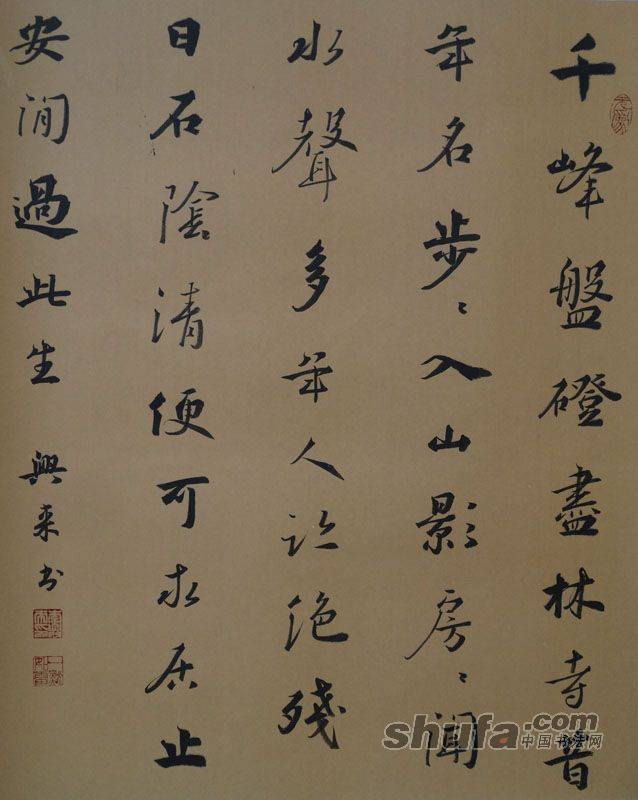 千峰盤磴盡林寺昔
年名步〻入山影房〻聞
水聲多年人跡絕殘
日石陰清便可求居止
安閒過此生
興來書
shufa.com
中国书法网